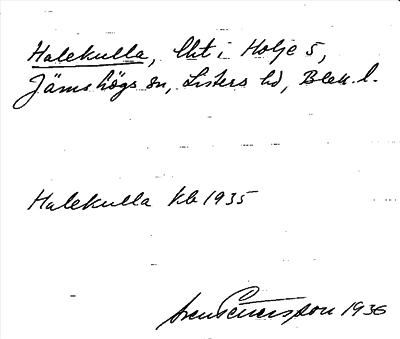 Halekulla, lht i Holje 5,
Jämshögs sn, Listers hd, Blek. l.
Halekulla kb 1935
Sven Petersson 1936